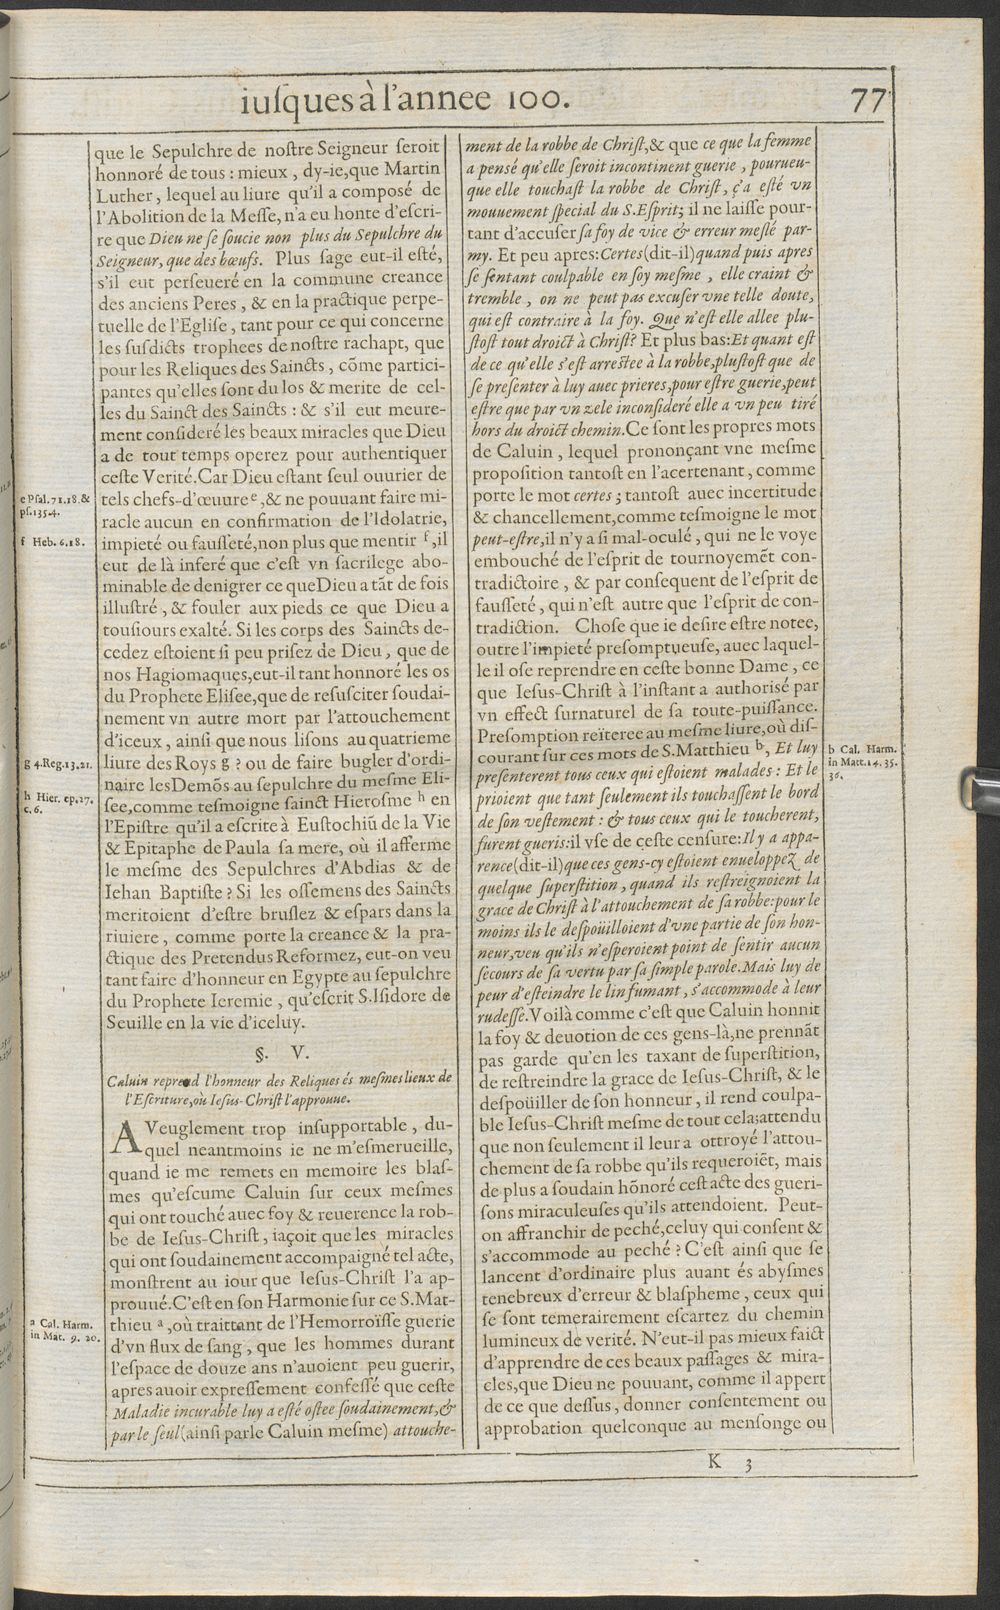 iuſques à l'annee 100.
77
que le Sepulchre de noſtre Seigneur ſeroit
honnoré de tous : mieux, dy-ie, que Martin
Luther, lequel au liure qu'il a composé de
l'Abolition de la Meſſe, n'a eu honte d'eſcri-
re que Dieu ne ſe ſoucie non plus du Sepulchre du
Seigneur, que des bœufs. Plus ſage eut-il eſté,
s'il eut perſeueré en la commune creance
des anciens Peres, & en la practique perpe-
tuelle de l'Egliſe, tant pour ce qui concerne
les ſuſdicts trophees de noſtre rachapt, que
pour les Reliques des Saincts, cõme partici-
pantes qu'elles ſont du los & merite de cel-
les du Sainct des Saincts : & s'il eut meure-
ment conſideré les beaux miracles que Dieu
a de tout temps operez pour authentiquer
ceſte Verité. Car Dieu eſtant ſeul ouurier de
tels chefs-d'œuure e, & ne pouuant faire mi-
racle aucun en confirmation de l'Idolatrie,
impieté ou fauſſeté, non plus que mentir f, il
eut de là inferé que c'eſt vn ſacrilege abo-
minable de denigrer ce que Dieu a tãt de fois
illuſtré, & fouler aux pieds ce que Dieu a
touſiours exalté. Si les corps des Saincts de-
cedez eſtoient ſi peu priſez de Dieu, que de
nos Hagiomaques, eut-il tant honnoré les os
du Prophete Eliſee, que de reſuſciter ſoudai-
nement vn autre mort par l'attouchement
d'iceux, ainſi que nous liſons au quatrieme
liure des Roys g ? ou de faire bugler d'ordi-
naire les Demõs au ſepulchre du meſme Eli-
ſee, comme teſmoigne ſainct Hieroſme h en
l'Epiſtre qu'il a eſcrite à Euſtochiũ de la Vie
& Epitaphe de Paula ſa mere, où il afferme
le meſme des Sepulchres d'Abdias & de
Iehan Baptiſte ? Si les oſſemens des Saincts
meritoient d'eſtre bruſlez & eſpars dans la
riuiere, comme porte la creance & la pra-
ctique des Pretendus Reformez, eut-on veu
tant faire d'honneur en Egypte au ſepulchre
du Prophete Ieremie, qu'eſcrit S. Iſidore de
Seuille en la vie d'iceluy.
§. V.
Caluin reprend l'honneur des Reliques és meſmes lieux de
l'Eſcriture, où Ieſus-Chriſt l'approuue.
AVeuglement trop inſupportable, du-
quel neantmoins ie ne m'eſmerueille,
quand ie me remets en memoire les blaſ-
mes qu'eſcume Caluin ſur ceux meſmes
qui ont touché auec foy & reuerence la rob-
be de Ieſus-Chriſt, iaçoit que les miracles
qui ont ſoudainement accompaigné tel acte,
monſtrent au iour que Ieſus-Chriſt l'a ap-
prouué. C'eſt en ſon Harmonie ſur ce S. Mat-
thieu a, où traittant de l'Hemorroïſſe guerie
d'vn flux de ſang, que les hommes durant
l'eſpace de douze ans n'auoient peu guerir,
apres auoir expreſſement confeſſé que ceſte
Maladie incurable luy a eſté oſtee ſoudainement, &
par le ſeul (ainſi parle Caluin meſme) attouche-
e Pſal. 71.18. &
pſ. 135.4.
f Heb. 6.18.
g 4. Reg. 13.21.
h Hier. ep. 27.
c. 6.
a Cal. Harm.
in Mat. 9. 20.
ment de la robbe de Chriſt, & que ce que la femme
a pensé qu'elle ſeroit incontinent guerie, pourueu-
que elle touchaſt la robbe de Chriſt, ç'a eſté vn
mouuement ſpecial du S. Eſprit; il ne laiſſe pour-
tant d'accuſer ſa foy de vice & erreur meſlé par-
my. Et peu apres: Certes (dit-il) quand puis apres
ſe ſentant coulpable en ſoy meſme, elle craint &
tremble, on ne peut pas excuſer vne telle doute,
qui eſt contraire à la foy. Que n'eſt elle allee plu-
ſtoſt tout droict à Chriſt? Et plus bas: Et quant eſt
de ce qu'elle s'eſt arreſtee à la robbe, pluſtoſt que de
ſe preſenter à luy auec prieres, pour eſtre guerie, peut
eſtre que par vn zele inconſideré elle a vn peu tiré
hors du droict chemin. Ce ſont les propres mots
de Caluin, lequel prononçant vne meſme
propoſition tantoſt en l'acertenant, comme
porte le mot certes; tantoſt auec incertitude
& chancellement, comme teſmoigne le mot
peut-eſtre, il n'y a ſi mal-oculé, qui ne le voye
embouché de l'eſprit de tournoyemẽt con-
tradictoire, & par conſequent de l'eſprit de
fauſſeté, qui n'eſt autre que l'eſprit de con-
tradiction. Choſe que ie deſire eſtre notee,
outre l'impieté preſomptueuſe, auec laquel-
le il oſe reprendre en ceſte bonne Dame, ce
que Ieſus-Chriſt à l'inſtant a authorisé par
vn effect ſurnaturel de ſa toute-puiſſance.
Preſomption reïteree au meſme liure, où diſ-
courant ſur ces mots de S. Matthieu b, Et luy
preſenterent tous ceux qui eſtoient malades : Et le
prioient que tant ſeulement ils touchaſſent le bord
de ſon veſtement : & tous ceux qui le toucherent,
furent gueris: il vſe de ceſte cenſure: Il y a appa-
rence (dit-il) que ces gens-cy eſtoient enueloppez de
quelque ſuperſtition, quand ils reſtreignoient la
grace de Chriſt à l'attouchement de ſa robbe: pour le
moins ils le deſpoüilloient d'vne partie de ſon hon-
neur, veu qu'ils n'eſperoient point de ſentir aucun
ſecours de ſa vertu par ſa ſimple parole. Mais luy de
peur d'eſteindre le lin fumant, s'accommode à leur
rudeſſe. Voilà comme c'eſt que Caluin honnit
la foy & deuotion de ces gens-là, ne prennãt
pas garde qu'en les taxant de ſuperſtition,
de reſtreindre la grace de Ieſus-Chriſt, & le
deſpoüiller de ſon honneur, il rend coulpa-
ble Ieſus-Chriſt meſme de tout cela; attendu
que non ſeulement il leur a ottroyé l'attou-
chement de ſa robbe qu'ils requeroiẽt, mais
de plus a ſoudain hõnoré ceſt acte des gueri-
ſons miraculeuſes qu'ils attendoient. Peut-
on affranchir de peché, celuy qui conſent &
s'accommode au peché ? C'eſt ainſi que ſe
lancent d'ordinaire plus auant és abyſmes
tenebreux d'erreur & blaſpheme, ceux qui
ſe ſont temerairement eſcartez du chemin
lumineux de verité. N'eut-il pas mieux faict
d'apprendre de ces beaux paſſages & mira-
cles, que Dieu ne pouuant, comme il appert
de ce que deſſus, donner conſentement ou
approbation quelconque au menſonge ou
b Cal. Harm.
in Matt. 14. 35.
36.
K 3